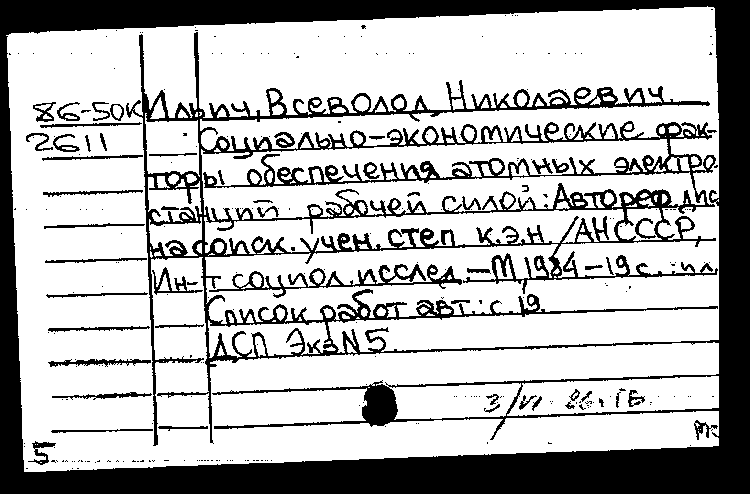 86-50К Ильич, Всеволод Николаевич.
2611 Социально-экономические фак-
торы обеспечения атомных электро
станций рабочей силой: Автореф. дис
на соиск. учен. степ к.э.н. /АН СССР,
Ин-т социол. исслед. – М, 1984 – 19 с. : ил
Список работ авт.: с. 19.
ДСП Экз N 5.
3/VI 86. ГБ
5